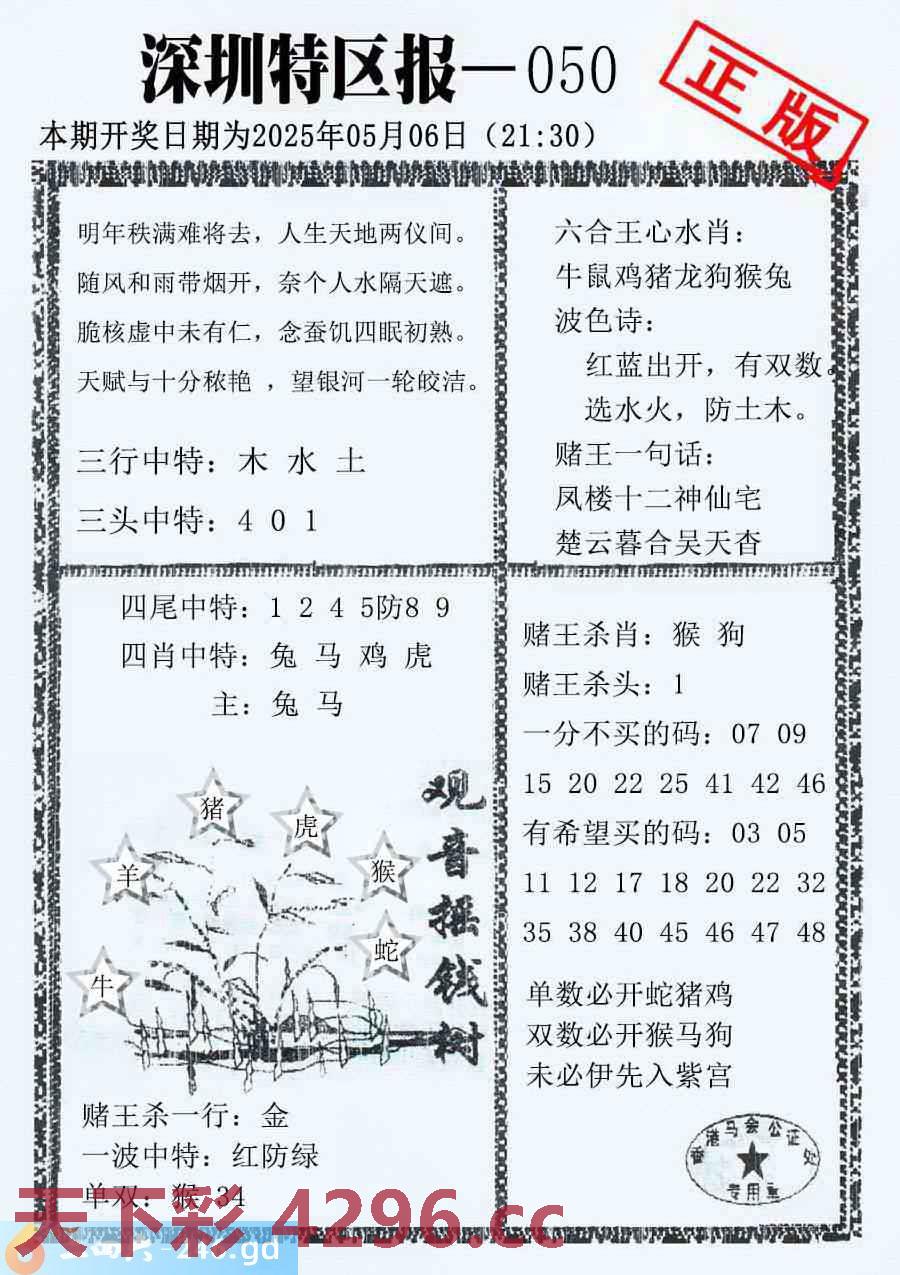 深圳特区报—050
正版
本期开奖日期为2025年05月06日（21:30）
明年秩满难将去，人生天地两仪间。
随风和雨带烟开，奈个人水隔天遮。
脆核虚中未有仁，念蚕饥四眠初熟。
天赋与十分秾艳 ，望银河一轮皎洁。
三行中特：木 水 土
三头中特：4 0 1
六合王心水肖：
牛鼠鸡猪龙狗猴兔
波色诗：
红蓝出开，有双数。
选水火，防土木。
赌王一句话：
凤楼十二神仙宅
楚云暮合吴天杳
四尾中特：1 2 4 5防8 9
四肖中特：兔 马 鸡 虎
主：兔 马
观音摇钱树
猪
虎
羊
猴
蛇
牛
赌王杀一行：金
一波中特：红防绿
单双：猴 34
赌王杀肖：猴 狗
赌王杀头：1
一分不买的码：07 09
15 20 22 25 41 42 46
有希望买的码：03 05
11 12 17 18 20 22 32
35 38 40 45 46 47 48
单数必开蛇猪鸡
双数必开猴马狗
未必伊先入紫宫
香港马会公证处
专用章
天下彩 4296.cc